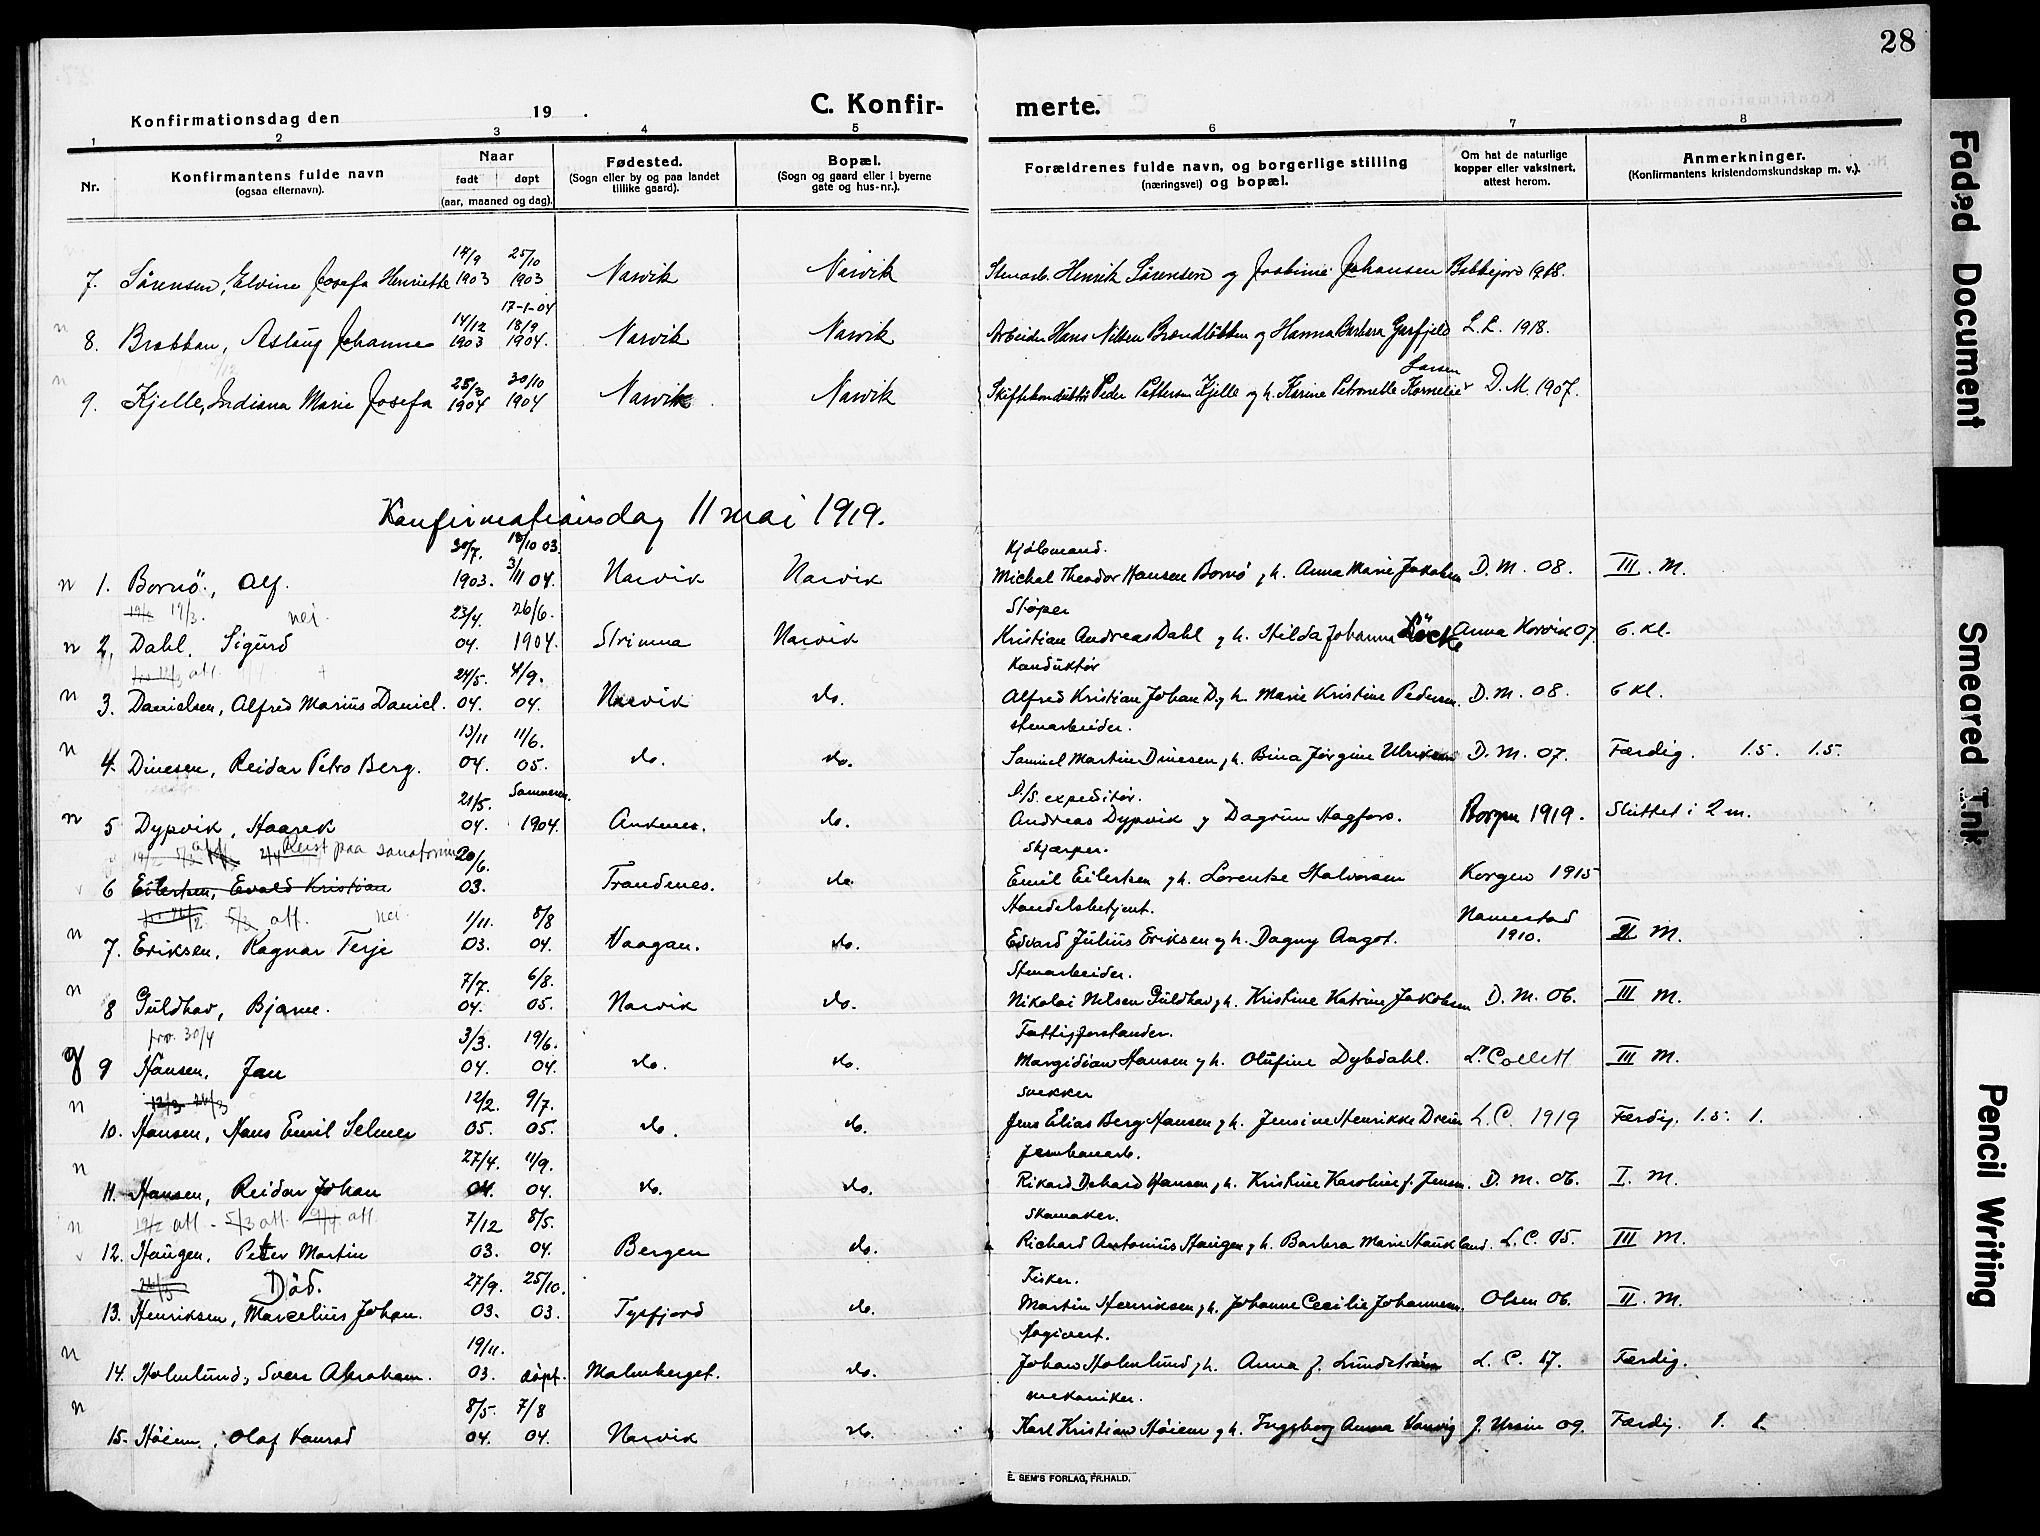 28
Konfirmationsdag den 19 .
C. Konfir-
merte.
1 2 3 4 5 6 7 8
Nr.
Konfirmantens fulde navn
(ogsaa efternavn).
Naar
født døpt
(aar, maaned og dag).
Fødested.
(Sogn eller by og paa landet
tillike gaard).
Bopæl.
(Sogn og gaard eller i byerne
gate og hus-nr.).
Forældrenes fulde navn, og borgerlige stilling
(næringsvei) og bopæl.
Om hat de naturlige
kopper eller vaksinert,
attest herom.
Anmerkninger.
(Konfirmantens kristendomskundskap m. v.).
25/10
7. Sørensen, Elvine Josefa Henriette 1903 1903 Narvik Narvik Stenarb. Henrik Sørensen og Johansen 1918.
17-1-04
14/12 18/9
n 8. Brækkan, Aslaug Johanne 1903 1904. Narvik Narvik Arbeider Hans Nilsen og Hanna L.L. 1918.
Larsen
25/3 30/10
n 9. Kjelle, Indiana Marie Josefa 1904 1904 Narvik Narvik Peder Pettersen Kjelle og h. Karine Petronelle D.M. 1907.
Konfirmationsdag 11 mai 1919.
30/7. 18/10 03. Kjøbmand.
n 1. Bornø, Alf. 1903. 3/11 04. Narvik Narvik Michal Theodor Hansen Bornø g h. Anna Marie Jakobsen D. M. 08. III. M.
19/2 19/3. nei. 23/4. 26/6. Støper
n 2, Dahl, Sigurd 04. 1904. Strinna Narvik Kristian Andreas Dahl g h. Hilda Johanna Löck Anna Korvik 07. 6. Kl.
att. 24/5. 4/9. Konduktør
n 3. Danielsen, Alfred Marius Daniel. 04. 04. Narvik do. Alfred Kristian Johan D. g h. Marie Kristine Pedersen. D. M. 08. 6 Kl.
13/11 11/6. stenarbeider.
n 4. Dinesen, Reidar Petro Berg. 04. 05. do. do. Samuel Martin Dinesen g h. Bina Jørgine Ulriksen D. M. 07. Færdig. 1.5. 1.5.
21/5. Sommeren. D/S. expeditør.
n 5 Dypvik, Haarek 04. 1904. Ankenes. do. Andreas Dypvik g Dagrun Hagfors. Borgen 1919. Sluttet i 2 m.
Reist paa sanatorium 20/6. Skjærper.
6 Eilertsen, Evald Kristian 03. Trondenes. do. Emil Eilertsen g h. Lorentse Halvorsen Korgen 1915
5/3 att. nei. 1/11. 8/8 Handelsbetjent.
n 7. Eriksen, Ragnar Terje 03. 04. Vaagan. do. Edvard Julius Eriksen g h. Dagny Aagot. 1910. II M.
7/7. 6/8. Stenarbeider.
n 8 Guldhav, Bjarne. 04. 05. Narvik do. Nikolai Nilsen Guldhav g h. Kristine Katrine Jakobsen D. M. 06. III M.
30/4 3/3. 19/6. Fattigforstander.
g 9 Hansen, Jan 04. 04. do. do. Margidian Hansen g h. Olufine Dybdahl. Collett III M.
12/3 12/2. 9/7. Snekker
n 10. Hansen, Hans Emil Selmer 05. 05. do. do. Jens Elias Berg Hansen g h. Jensine Henrikke L. C. 1919 Færdig. 1.5. 1.
27/4. 11/9. Jernbanearb.
n 11. Hansen, Reidar Johan 04. 04. do. do. Rikard Hansen g h. Kristine Karoline f. Jensen. D. M. 06. I. M.
19/2 att - 5/3 att. 9/4 att 7/12 8/5. Skomaker.
n 12. Haugen, Peter Martin 03. 04. Bergen do. Richard Antonius Haugen g h. Barbra Marie Haukland. L. C. 05. III M.
Död. 27/9. 25/10. Fisker.
13. Henriksen, Marcelius Johan. 03. 03. Tysfjord do. Martin Henriksen g h. Johanne Cecilie Johannesen. Olsen 06. II. M.
19/11.
n 14. Holmlund, Sven Abraham. 03. döpt. Malmberget. do. Johan Holmlund g h. Anna f. Lundström L. C. 17. Færdig.
8/5. 7/8 mekaniker.
n 15. Høiem, Olaf Konrad 04. 04. Narvik do. Karl Kristian Høiem g h. Ingeborg Anna J. Ursin 09. Færdig. 1. 1.
E. SEM'S FORLAG, FR.HALD.
Faded Document
Smeared Ink
Pencil Writing